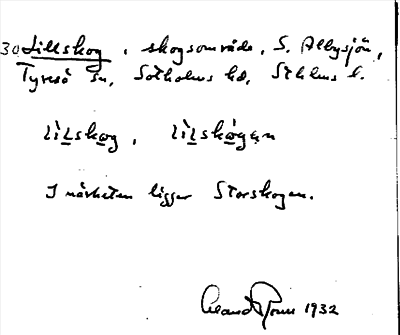 30 Lillskog, skogsområde, S. Albysjön,
Tyresö sn, Sotholms hd, Sthlms l.
lìlskog, lìlskogen
I närheten ligger Storskogen.
1932